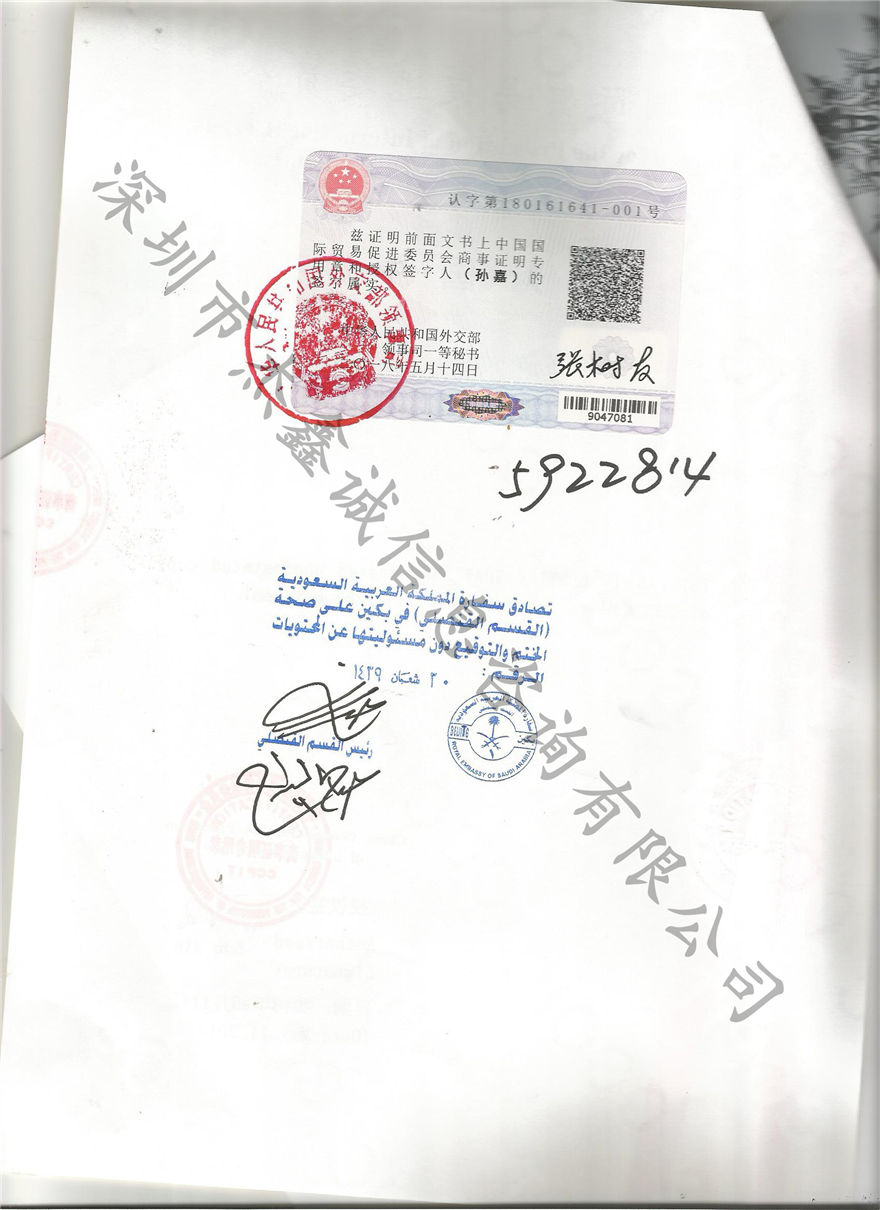 认字第180161641-001号
兹证明前面文书上中国国
际贸易促进委员会商事证明专
用章和授权签字人（孙嘉）的
签字属实。
中华人民共和国外交部
领事司一等秘书
二〇一八年五月十四日
张树友
9047081
5922814
تصادق سفارة المملكة العربية السعودية
(القسم القنصلي) في بكين على صحة
الختم والتوقيع دون مسئوليتها عن المحتويات
الرقم :
٢٠ شعبان ١٤٣٩
رئيس القسم القنصلي
BEIJING
ROYAL EMBASSY OF SAUDI ARABIA
深圳市杰鑫诚信息咨询有限公司